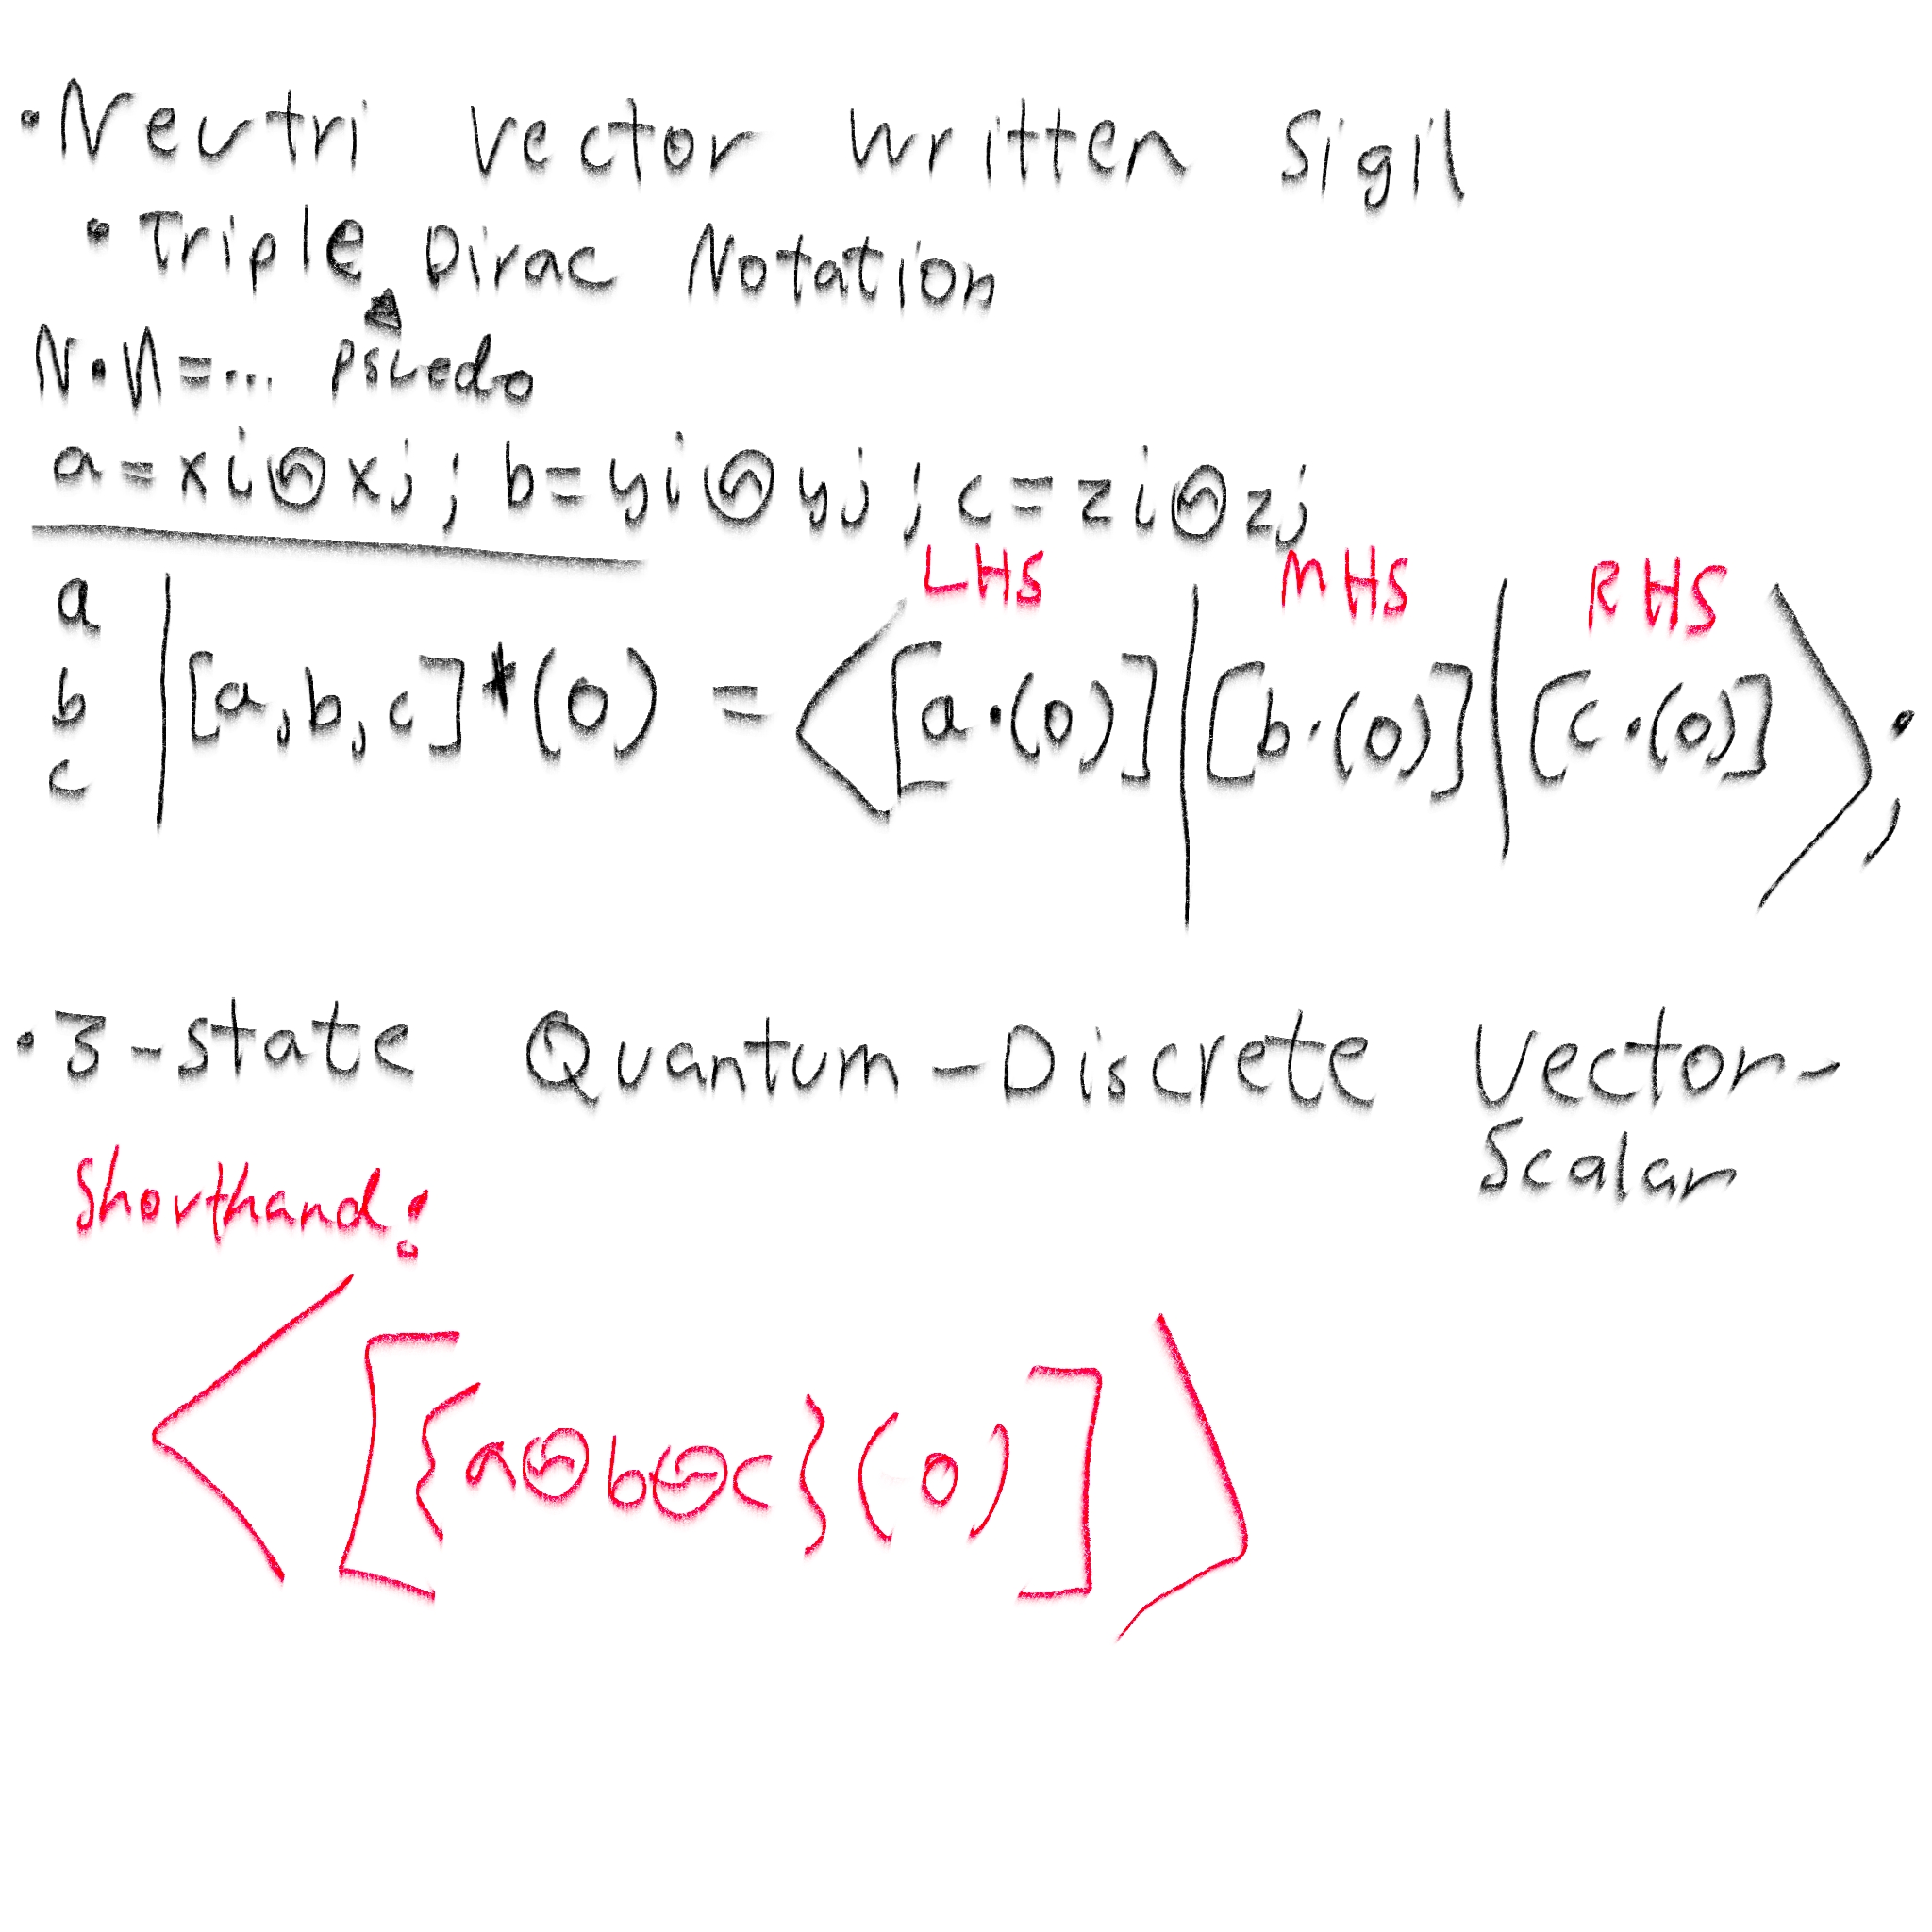 •Neutri vector written sigil
•Triple Dirac Notation
N•N=... Psuedo
a=xi⊙xj; b=yi⊙yj; c=zi⊙zj
LHS MHS RHS
a
b |[a,b,c]*(0) = ⟨[a•(0)]|[b•(0)]|[c•(0)]⟩;
c
•3-state Quantum-Discrete Vector-
Scalar
Shorthand:
⟨[{a⊙b⊙c}(0)]⟩